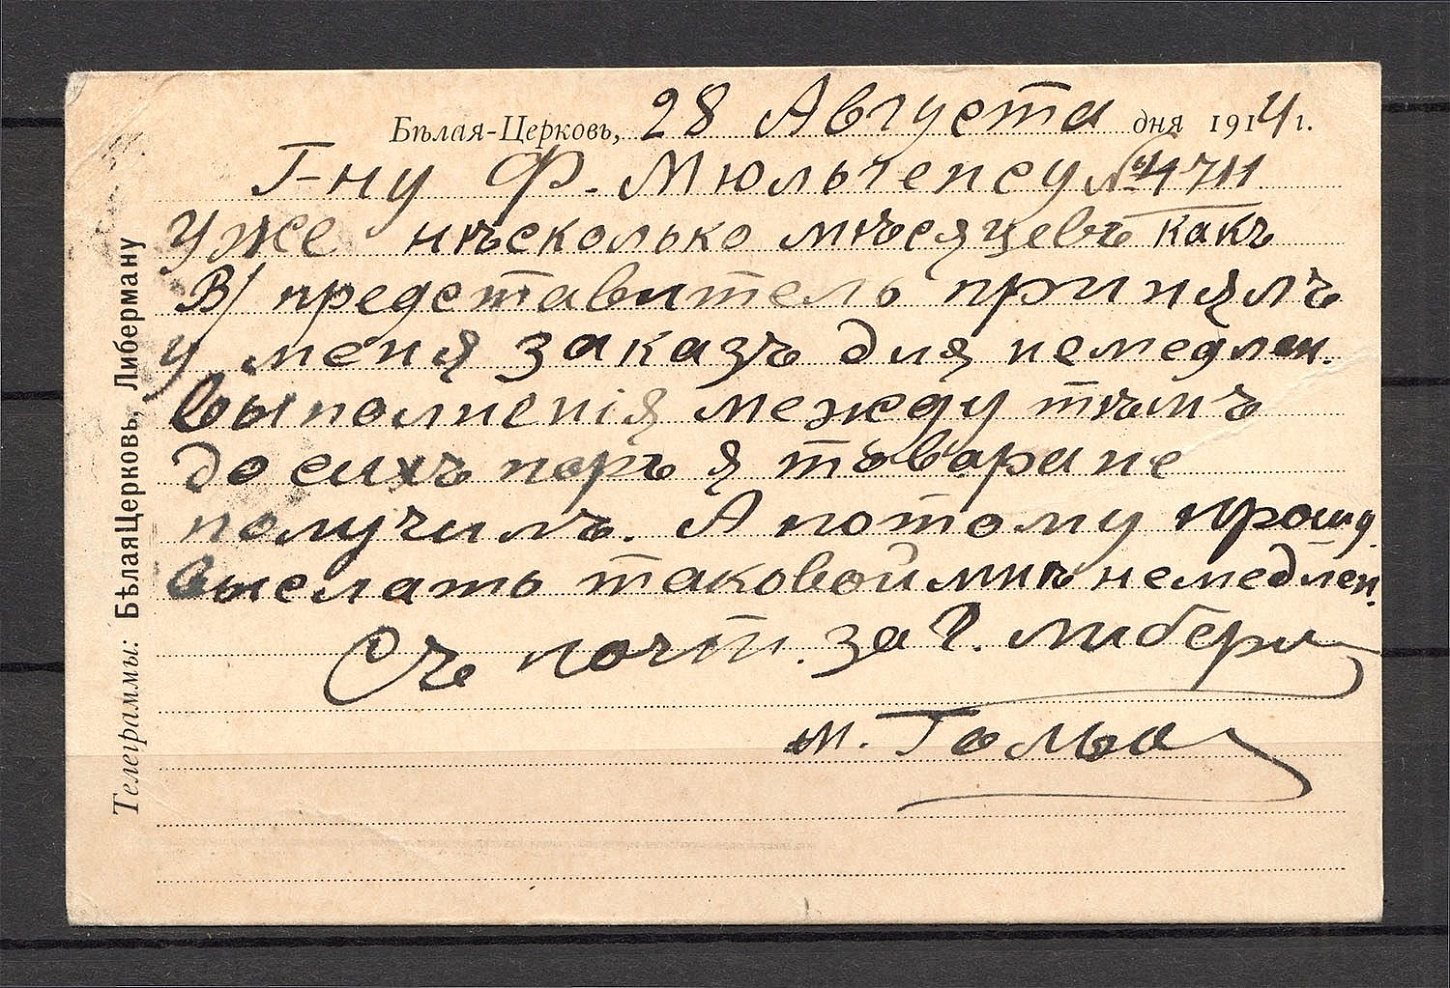 Бѣлая-Церковь, 28 Августа дня 1914 г.
Г-ну Ф. Мюльгенсу № 4711
Уже нѣсколько мѣсяцевъ какъ
В/ представитель принялъ
у меня заказъ для немедлен.
выполненія между тѣмъ
до сихъ поръ я товара не
получилъ. А потому прошу
выслать таковой мнѣ немедлен.
Съ почт. за Р. Либерм
М. Гольд
Телеграммы: БѣлаяЦерковь, Либерману